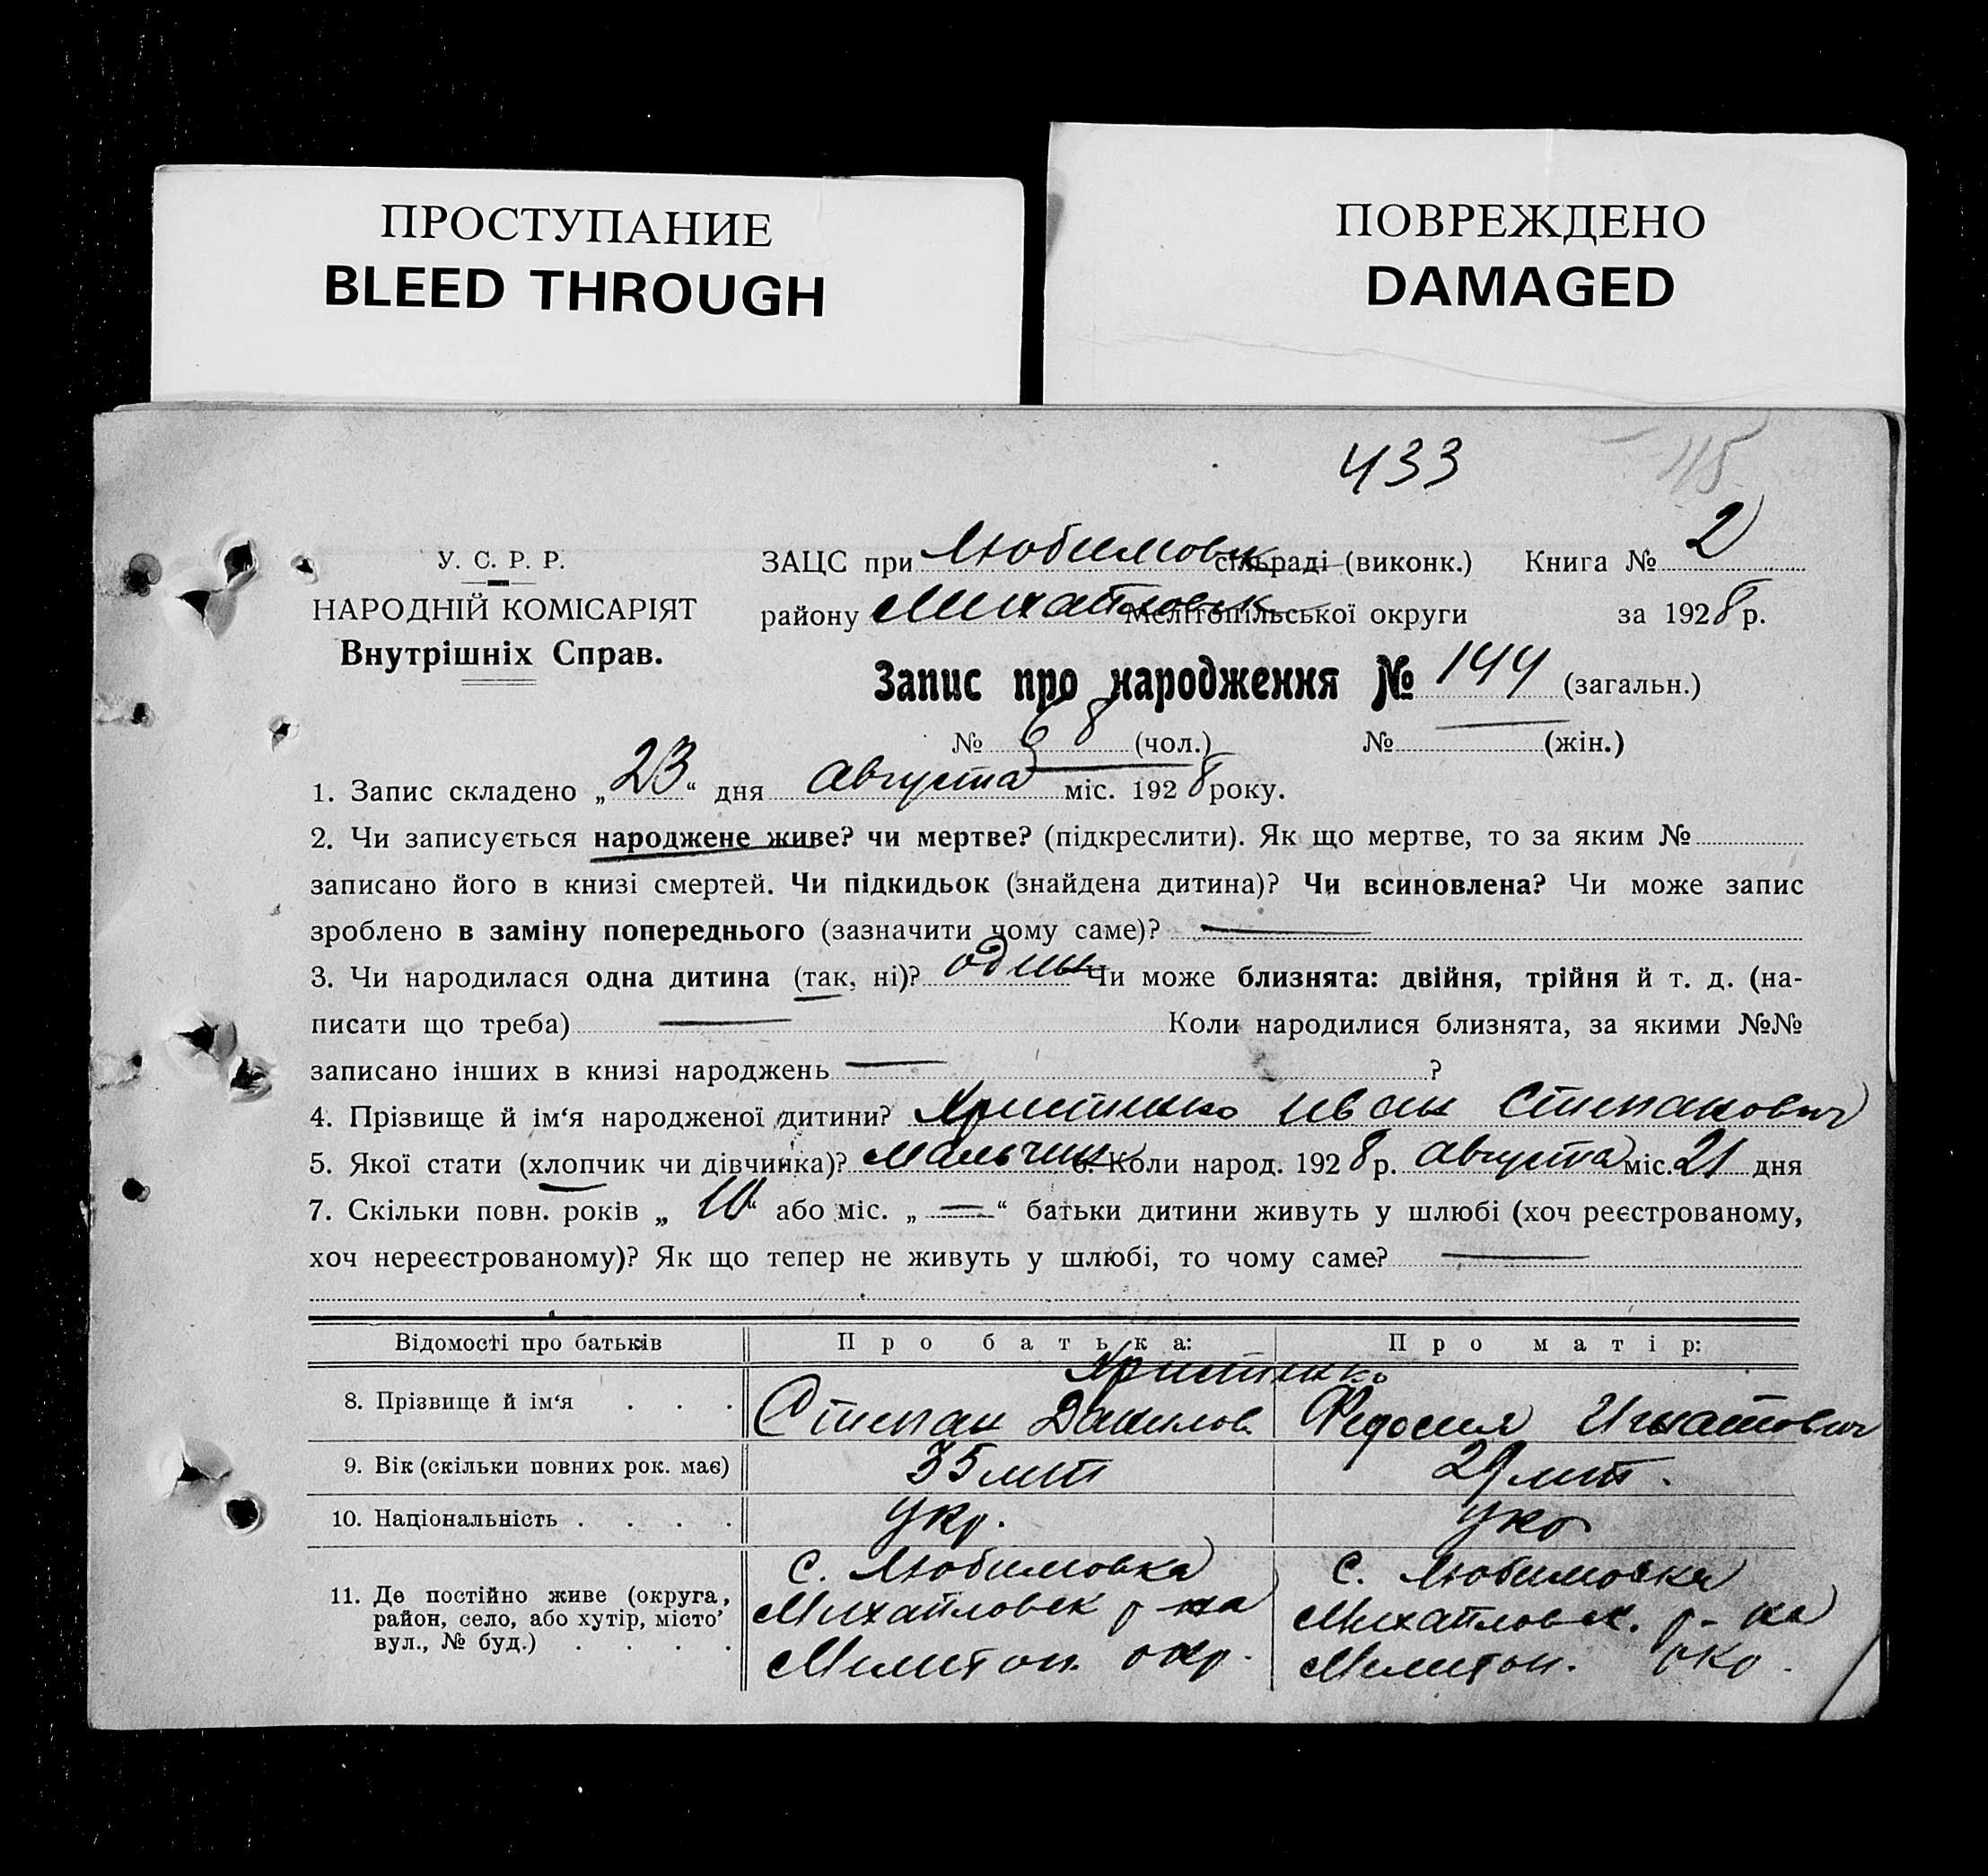 ПРОСТУПАНИЕ
BLEED THROUGH
ПОВРЕЖДЕНО
DAMAGED
433
115
У. С. Р. Р.
НАРОДНІЙ КОМІСАРІЯТ
Внутрішніх Справ.
ЗАЦС при Любимовк сільраді (виконк.) Книга № 2
району Михайловск Мелітопільської округи за 1928 р.
Запис про народження № 144 (загальн.)
№ 68 (чол.) № — (жін.)
1. Запис складено „23“ дня августа міс. 1928 року.
2. Чи записується народжене живе? чи мертве? (підкреслити). Як що мертве, то за яким №
записано його в книзі смертей. Чи підкидьок (знайдена дитина)? Чи всиновлена? Чи може запис
зроблено в заміну попереднього (зазначити чому саме)? —
3. Чи народилася одна дитина (так, ні)? один Чи може близнята: двійня, трійня й т. д. (на-
писати що треба) — Коли народилися близнята, за якими №№
записано інших в книзі народжень — ?
4. Прізвище й ім‘я народженої дитини? Христенко Иван Степанович
5. Якої стати (хлопчик чи дівчинка)? мальчик 6. Коли народ. 1928 р. августа міс. 21 дня
7. Скільки повн. років „10“ або міс. „—“ батьки дитини живуть у шлюбі (хоч реєстрованому,
хоч нереєстрованому)? Як що тепер не живуть у шлюбі, то чому саме? —
Відомості про батьків Про батька: Про матір:
Христенко
8. Прізвище й ім‘я . . . Степан Данилов. Федосия Игнатович
9. Вік (скільки повних рок. має) 35 лет 29 лет.
10. Національність . . . . укр. укр
11. Де постійно живе (округа, район, село, або хутір, місто’ вул., № буд.) . . . .
с. Любимовка
Михайловск р-на
Мелитоп. окр.
с. Любимовка
Михайловск. р-на
Мелитоп. окр.